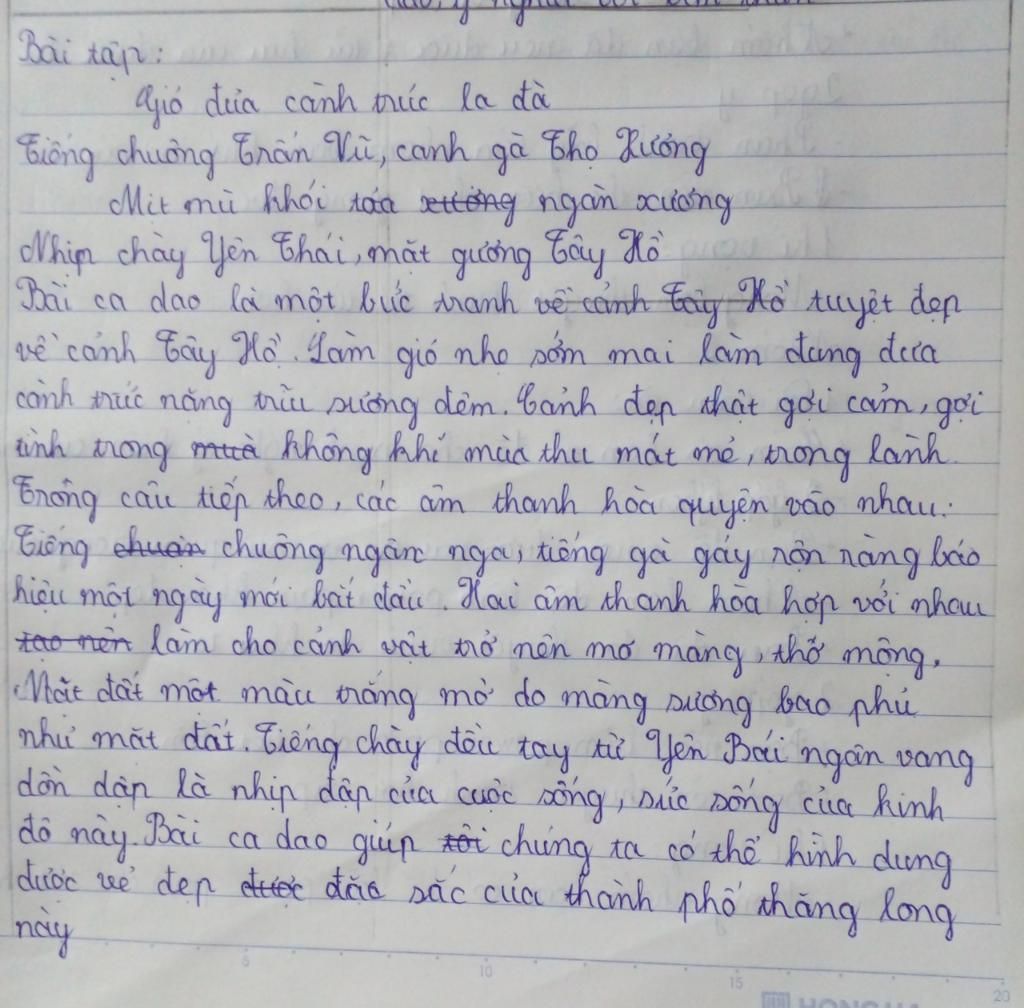 Bài tập:
Gió đưa cành trúc la đà
Tiếng chuông Trấn Vũ, canh gà Thọ Xương
Mịt mù khói tỏa xương ngàn xương
Nhịp chày Yên Thái, mặt gương Tây Hồ
Bài ca dao là một bức tranh về cảnh Tây Hồ tuyệt đẹp
về cảnh Tây Hồ. Làn gió nhẹ sớm mai làm đung đưa
cành trúc nặng trĩu sương đêm. Cảnh đẹp thật gợi cảm, gợi
tình trong không khí mùa thu mát mẻ, trong lành.
Trong câu tiếp theo, các âm thanh hòa quyện vào nhau:
Tiếng chuôn chuông ngân nga, tiếng gà gáy rộn ràng báo
hiệu một ngày mới bắt đầu. Hai âm thanh hòa hợp với nhau
tạo nên làm cho cảnh vật trở nên mơ màng, thơ mộng.
Mặt đất một màu trắng mờ do màng sương bao phủ
như mặt đất. Tiếng chày đều tay từ Yên Bái ngân vang
dồn dập là nhịp đập của cuộc sống, sức sống của kinh
đô này. Bài ca dao giúp tôi chúng ta có thể hình dung
được vẻ đẹp được đặc sắc của thành phố thăng long
này
5 10 15 20